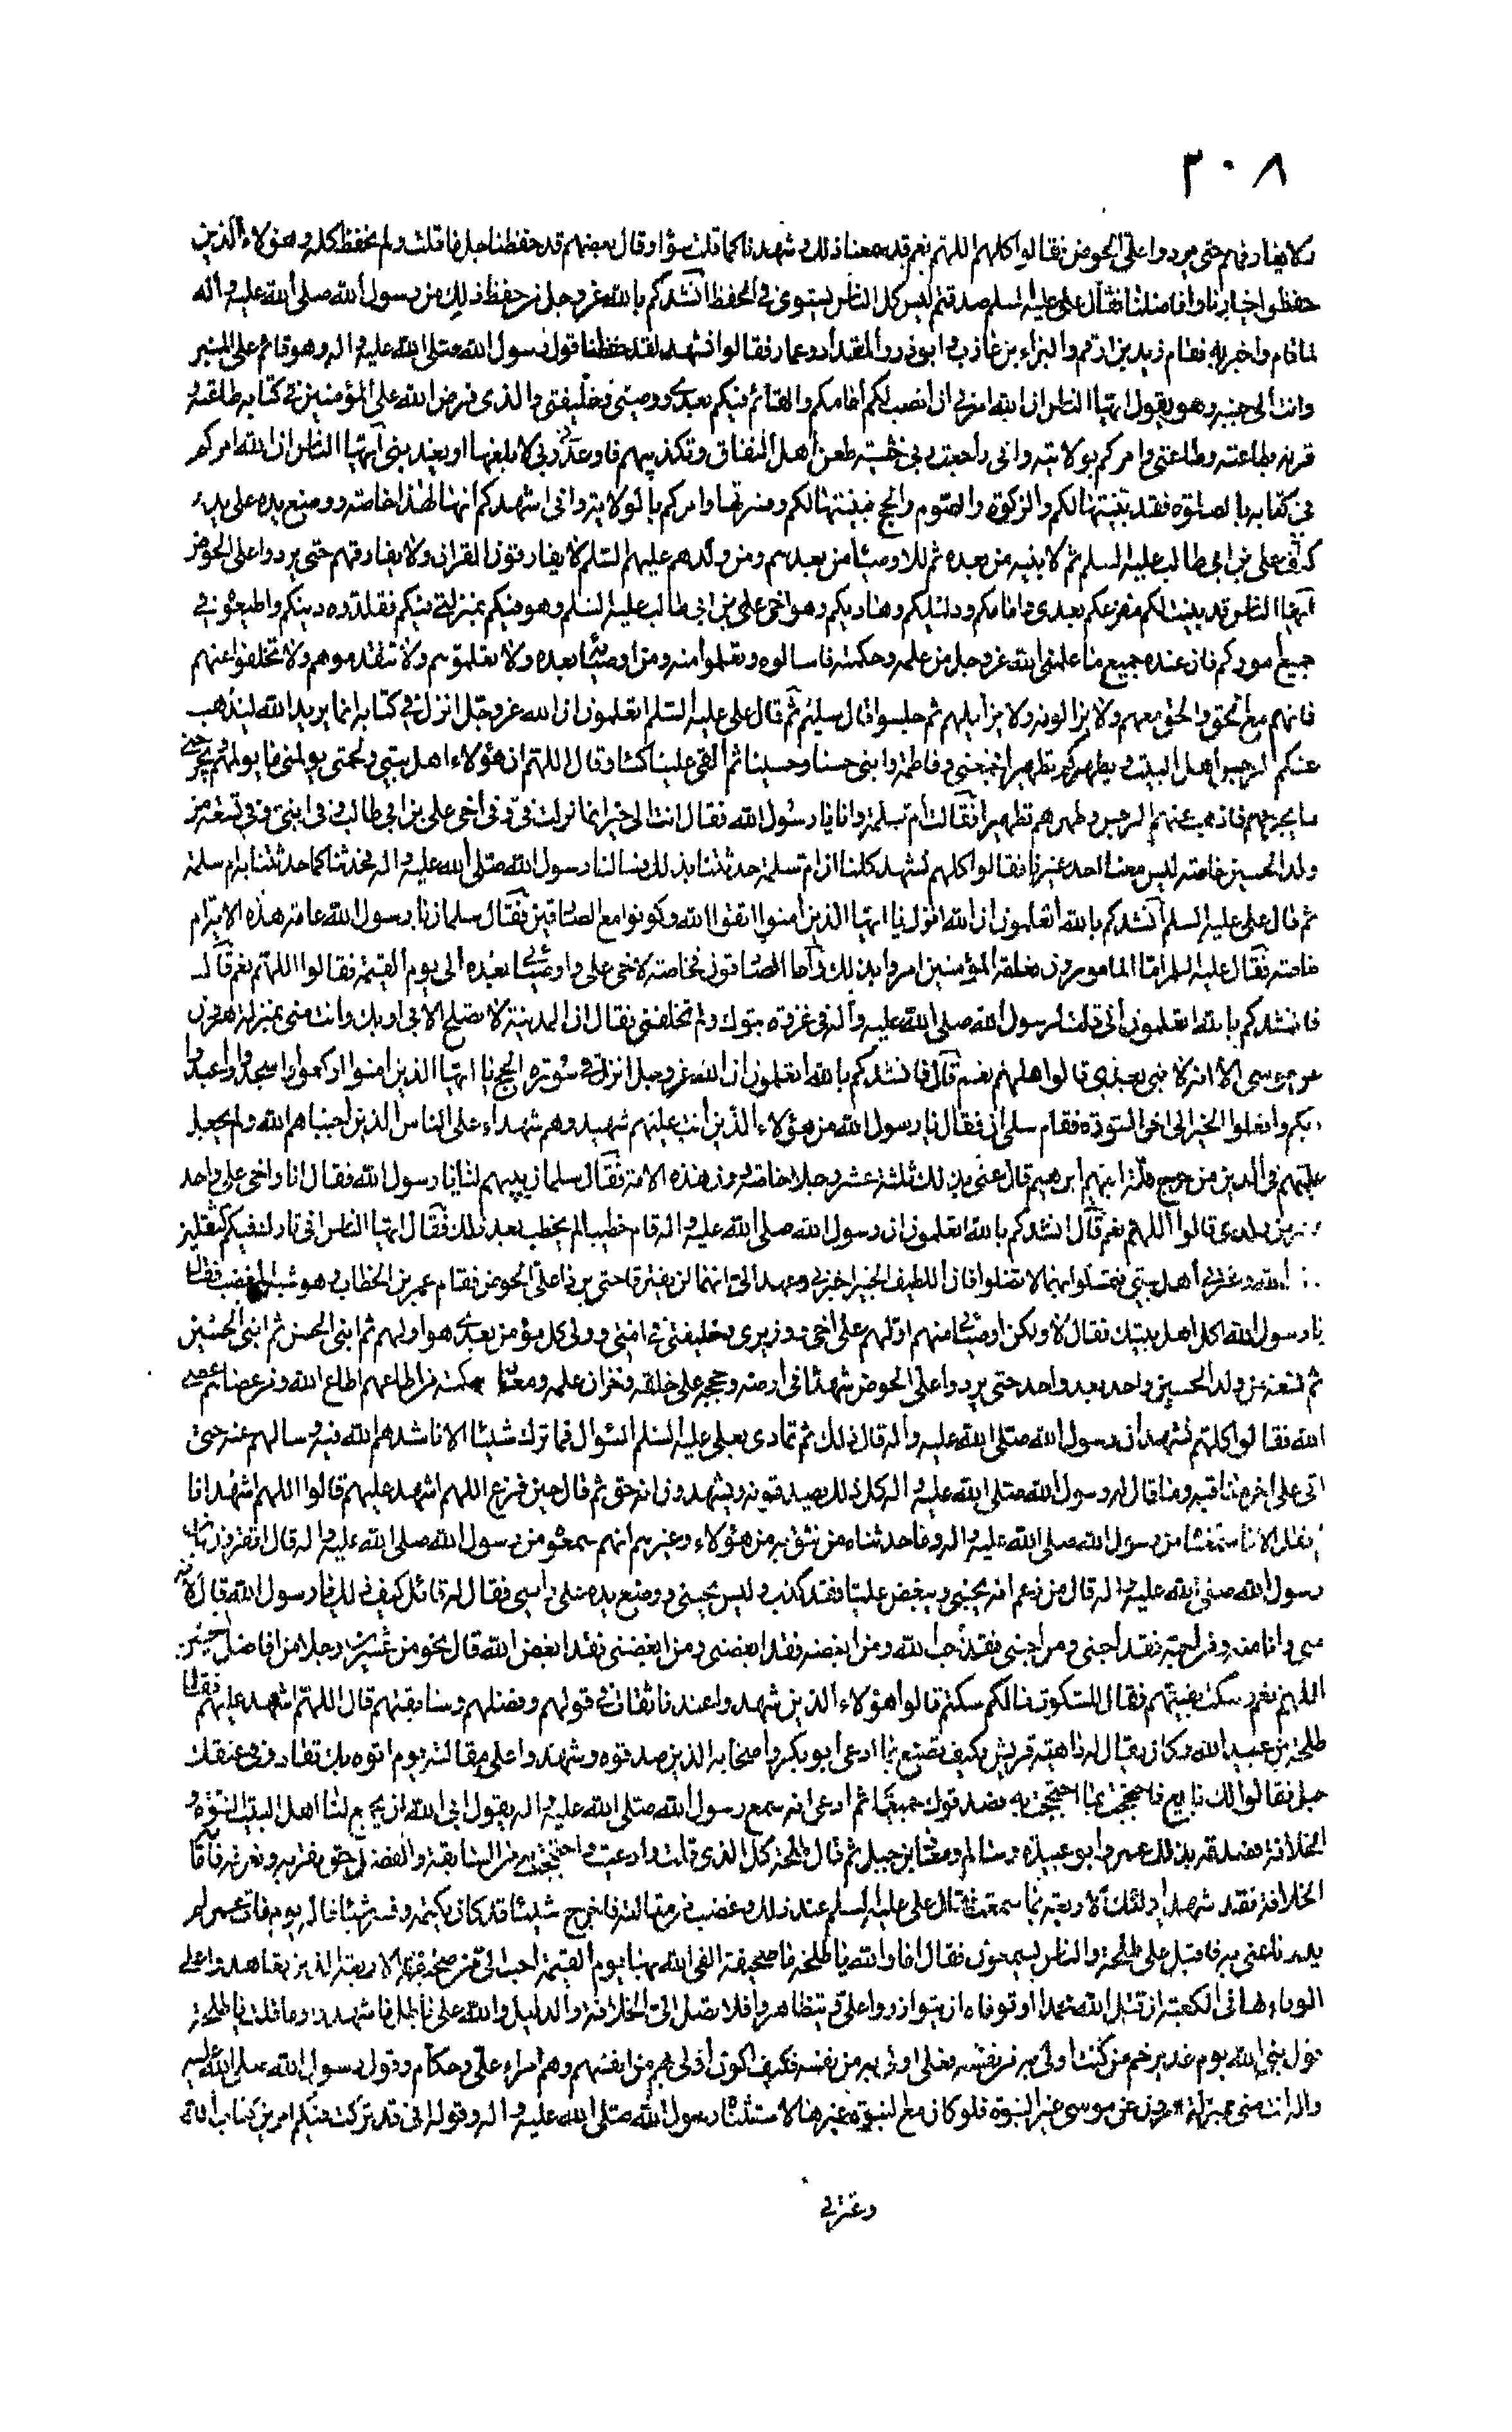 ٣٠٨
ولا يفارقهم حتى يردوا على الحوض فقالوا كلهم اللهم نعم قد سمعنا ذلك وشهدنا كما قلت سواء وقال بعضهم قد حفظنا جل ما قلت ولم نحفظ كله وهؤلاء الذين
حفظوا اخيارنا وافاضلنا فقال علي عليه السلم صدقتم ليس كل الناس يستوى في الحفظ انشدكم بالله عز وجل من حفظ ذلك من رسول الله صلى الله عليه وآله
لما قام واخبر به فقام زيد بن ارقم والبراء بن عازب وابوذر والمقداد وعمار فقالوا نشهد لقد حفظنا قول رسول الله صلى الله عليه واله وهو قائم على المنبر
وانت الى جنبه وهو يقول ايها الناس ان الله امرني ان انصب لكم امامكم والقائم فيكم بعدي ووصيي وخليفتي والذي فرض الله على المؤمنين في كتابه طاعته و
قرنه بطاعته وطاعتي وامركم بولايته واني راجعت ربي خشية طعن اهل النفاق وتكذيبهم فاوعدني ربي لابلغنها او يعذبني ايها الناس ان الله امركم
في كتابه بالصلوة فقد بينتها لكم والزكوة والصوم والحج فبينتها لكم وفسرتها وامركم بالولاية واني اشهدكم انها لهذا خاصة ووضع يده على يد
علي بن ابي طالب عليه السلم ثم لابنيه من بعده ثم للاوصياء من بعدهم ومن ولدهم عليهم السلم لا يفارقون القران ولا يفارقهم حتى يردوا على الحوض
ايها الناس قد بينت لكم مفزعكم بعدي وامامكم ودليلكم وهاديكم وهو اخي علي بن ابي طالب عليه السلم وهو فيكم بمنزلتي فيكم فقلدوه دينكم واطيعوني في
جميع اموركم فان عنده جميع ما علمني الله عز وجل من علمه وحكمته فاسالوه وتعلموا منه ومن اوصيائه بعده ولا تعلموهم ولا تتقدموهم ولا تخلفوا عنهم
فانهم مع الحق والحق معهم ولا يزالونه ولا يزايلهم ثم جلسوا قال سليم ثم قال علي عليه السلم اتعلمون ان الله عز وجل انزل في كتابه انما يريد الله ليذهب
عنكم الرجس اهل البيت ويطهركم تطهيرا فجمعني وفاطمة وابني حسنا وحسينا ثم القى علينا كساء وقال اللهم ان هؤلاء اهل بيتي ولحمتي يولمني ما يولمهم ويجرحني
ما يجرحهم فاذهب عنهم الرجس وطهرهم تطهيرا فقالت ام سلمة وانا يا رسول الله فقال انت الى خير انما نزلت في وفي اخي علي بن ابي طالب وفي ابني وفي تسعة من
ولد الحسين خاصة ليس معنا احد غيرنا فقالوا كلهم نشهد كلنا ان ام سلمة حدثتنا بذلك فسالنا رسول الله صلى الله عليه واله فحدثنا كما حدثتنا به ام سلمة
ثم قال علي عليه السلم انشدكم بالله اتعلمون ان الله انزل يا ايها الذين آمنوا اتقوا الله وكونوا مع الصادقين فقال سلمان يا رسول الله عامة هذه الاية ام
خاصة فقال عليه السلم اما المامورون فعامة المؤمنين امروا بذلك واما الصادقون فخاصة لاخي علي واوصيائي بعده الى يوم القيمة فقالوا اللهم نعم قال
فانشدكم بالله اتعلمون اني قلت لرسول الله صلى الله عليه وآله في غزوة تبوك ولم تخلفني فقال ان المدينة لا يصلح الا بي او بك وانت مني بمنزلة هرون
من موسى الا انه لا نبي بعدي قالوا اللهم نعم قال فانشدكم بالله اتعلمون ان الله عز وجل انزل في سورة الحج يا ايها الذين امنوا اركعوا واسجدوا واعبدوا
ربكم وافعلوا الخير الى اخر السورة فقام سلمان فقال يا رسول الله من هؤلاء الذين انت عليهم شهيد وهم شهداء على الناس الذين اجتباهم الله ولم يجعل
عليهم في الدين من حرج ملة ابيهم ابرهيم قال عنى بذلك ثلثة عشر رجلا خاصة دون هذه الامة فقال سلمان بينهم لنا يا رسول الله فقال انا واخي علي واحد
عشر من ولدي قالوا اللهم نعم قال انشدكم بالله اتعلمون ان رسول الله صلى الله عليه واله قام خطيبا لم يخطب بعد ذلك فقال ايها الناس اني تارك فيكم الثقلين
كتاب الله وعترتي اهل بيتي فتمسكوا بهما لا تضلوا فان اللطيف الخبير اخبرني وعهد الي انهما لن يفترقا حتى يردا علي الحوض فقام عمر بن الخطاب وهو شبه المغضب فقال
يا رسول الله اكل اهل بيتك فقال لا ولكن اوصيائي منهم اولهم علي اخي ووزيري وخليفتي في امتي وولي كل مؤمن بعدي هو اولهم ثم ابني الحسن ثم ابني الحسين
ثم تسعة من ولد الحسين واحد بعد واحد حتى يردوا على الحوض شهداء في ارضه وحججه على خلقه وخزان علمه ومعادن حكمته من اطاعهم اطاع الله ومن عصاهم عصى
الله فقالوا كلهم نشهد ان رسول الله صلى الله عليه واله قال ذلك ثم تمادى بعلي عليه السلم السؤال فما ترك شيئا الا ناشدهم الله فيه وسالهم عنه حتى
اتى على اخر مناقبه وما قال له رسول الله صلى الله عليه واله كل ذلك يصدقونه ويشهدون انه حق ثم قال حين فرغ اللهم اشهد عليهم قالوا اللهم اشهد انا
لم نقل الا ما سمعناه من رسول الله صلى الله عليه واله وما حدثناه من نثق به من هؤلاء وغيرهم انهم سمعوه من رسول الله صلى الله عليه واله قال اتقرون بان
رسول الله صلى الله عليه واله قال من زعم انه يحبني ويبغض عليا فقد كذب وليس يحبني ووضع يده على راسي فقال له قائل كيف ذلك يا رسول الله قال لانه
مني وانا منه ومن احبه فقد احبني ومن احبني فقد احب الله ومن ابغضه فقد ابغضني ومن ابغضني فقد ابغض الله قال نحو من عشرين رجلا من افاضل الحيين
اللهم نعم وسكت بقيتهم فقال للسكوت مالكم سكتم قالوا هؤلاء الذين شهدوا عندنا ثقات في قولهم وفضلهم وسابقتهم قال اللهم اشهد عليهم فقال
طلحة بن عبيد الله وكان يقال له داهية قريش فكيف تصنع بما ادعى ابو بكر واصحابه الذين صدقوه وشهدوا على مقالته يوم اتوه بك تقاد وفي عنقك
حبل فقالوا لك بايع فاحتججت بما احتججت به فصدقوك جميعا ثم ادعى انه سمع رسول الله صلى الله عليه واله يقول ابى الله ان يجمع لنا اهل البيت النبوة و
الخلافة فصدقه بذلك عمر وابو عبيدة وسالم ومعاذ بن جبل ثم قال طلحة كل الذي قلت وادعيت واحتججت به من السابقة والفضل حق نقر به ونعرفه فاما
الخلافة فقد شهد اولئك الاربعة بما سمعت فقال علي عليه السلم عند ذلك وغضب من مقالته فاخرج شيئا قد كان يكتمه وفسر شيئا قاله يوم مات عمر لم
يدر ما عنى به فاقبل على طلحة والناس يسمعون فقال اما والله يا طلحة ما صحيفة القى الله بها يوم القيمة احب الي من صحيفة الاربعة الذين تعاهدوا على
الوفاء بها في الكعبة ان قتل الله محمدا او توفاه ان يتوازروا علي ويتظاهروا فلا تصل الي الخلافة والدليل والله على باطل ما شهدوا وما قلت يا طلحة
قول نبي الله يوم غدير خم من كنت اولى به من نفسه فعلي اولى به من نفسه فكيف اكون اولى بهم من انفسهم وهم امراء علي وحكام وقول رسول الله صلى الله عليه
واله انت مني بمنزلة هرون من موسى غير النبوة فلو كان مع النبوة غيرها لاستثناه رسول الله صلى الله عليه واله وقوله اني قد تركت فيكم امرين كتاب الله
وعترتي